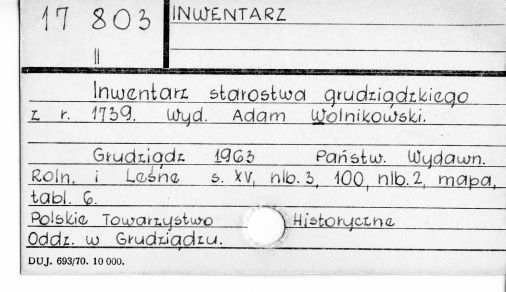 17 803
II
INWENTARZ
Inwentarz starostwa grudziądzkiego
z r. 1739. Wyd. Adam Wolnikowski.
Grudziądz 1963 Państw. Wydawn.
Roln. i Leśne s. XV, nlb. 3, 100, nlb. 2, mapa,
tabl. 6.
Polskie Towarzystwo Historyczne
Oddz. w Grudziądzu.
DUJ. 693/70. 10 000.